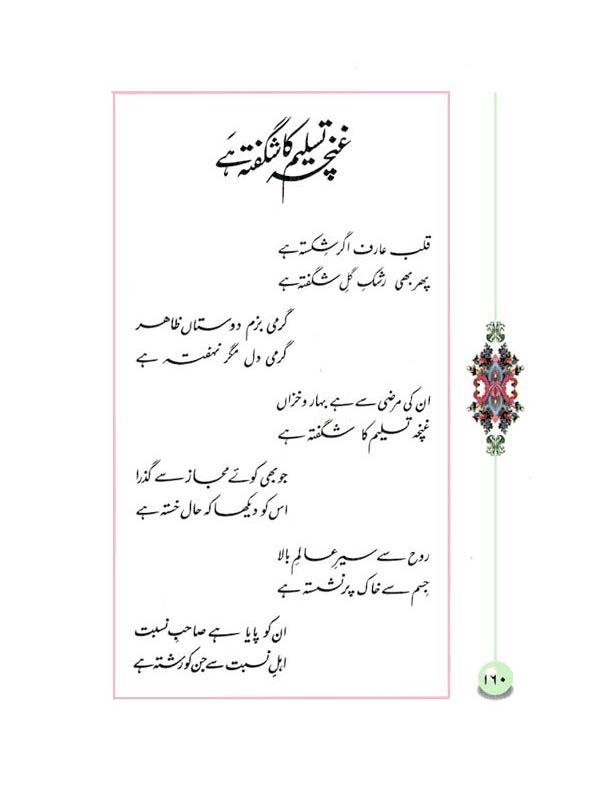 غنچہ تسلیم کا شگفتہ ہے
قلب عارف اگر شکستہ ہے
پھر بھی رشکِ گلِ شگفتہ ہے
گرمی بزم دوستاں ظاھر
گرمی دل مگر نہفتہ ہے
ان کی مرضی سے ہے بہار و خزاں
غنچہ تسلیم کا شگفتہ ہے
جو بھی کوئے مجاز سے گذرا
اس کو دیکھا کہ حال خستہ ہے
روح سے سیرِ عالمِ بالا
جسم سے خاک پر نشستہ ہے
ان کو پایا ہے صاحبِ نسبت
اہلِ نسبت سے جن کو رشتہ ہے
۱۶۰